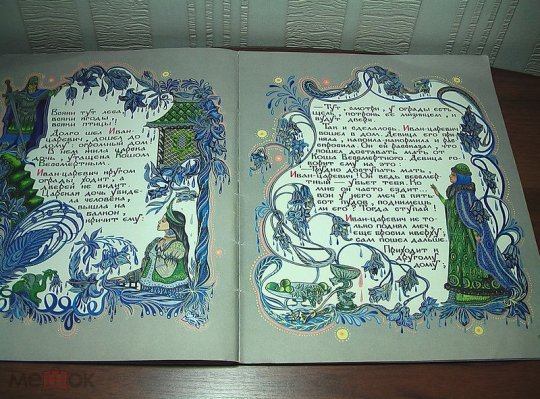 Вояни тут леса,
вояни ягоды,
вояни птицы!
Долго шел Иван-
царевич, дошел до
дому: огромный дом!
В нем жила царева
дочь, утащена Кошом
Безсмертным.
Иван-царевич кругом
ограды ходит,
дверей не видит.
Царская дочь увиде-
ла человека,
вышла на
балкон,
кричит ему:
Тут, смотри, у ограды есть
щель, потронь ее мизинцем, и
будут двери.
Так и сделалось. Иван-царевич
вошел в дом. Девица его при-
няла, напоила-накормила и рас-
спросила. Он ей рассказал, что пошел
доставать мать от
Коша Безсмертного. Девица го-
ворит ему на это:
– Трудно доступать мать,
Иван-царевич! Он ведь безмер-
тный – убьет тебя. Ко
мне он часто ездит...
вон у него меч в пять-
сот пудов, поднимешь
ли его? Тогда ступай!
Иван-царевич не то-
лько поднял меч,
еще бросил кверху;
сам пошел дальше.
Приходит к
другому
дому;
мешок